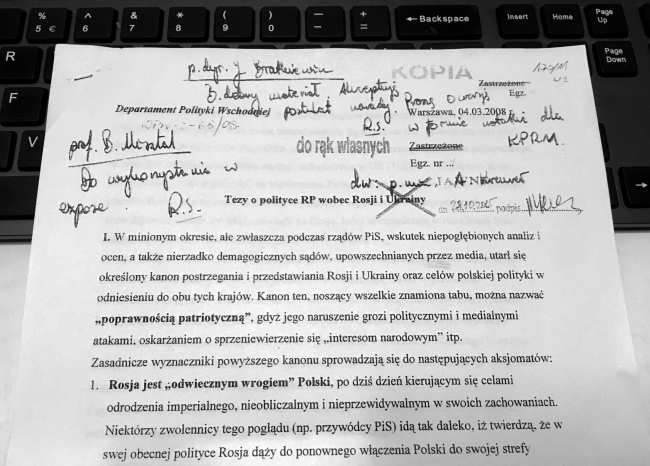 %
5 €
^
6
&
7
*
8
(
9
)
0
_
-
+
=
Backspace
Insert
Home
Page
Up
R
F
V
Page
Down
p. dyr. J. Bratkiewicz
KOPIA
Zastrzeżone
Egz.
B. dobry materiał. Akceptuję
postulat narady. Proszę o wersję
w formie notatki dla
KPRM.
R.S.
Departament Polityki Wschodniej
Warszawa, 04.03.2008 r.
do rąk własnych
Zastrzeżone
Egz. nr ...
prof. B. Misztal
Do wykorzystania w
expose.
R.S.
dw: p. min. J. A
Tezy o polityce RP wobec Rosji i Ukrainy
dn podpis
I. W minionym okresie, ale zwłaszcza podczas rządów PiS, wskutek niepogłębionych analiz i
ocen, a także nierzadko demagogicznych sądów, upowszechnianych przez media, utarł się
określony kanon postrzegania i przedstawiania Rosji i Ukrainy oraz celów polskiej polityki w
odniesieniu do obu tych krajów. Kanon ten, noszący wszelkie znamiona tabu, można nazwać
„poprawnością patriotyczną”, gdyż jego naruszenie grozi politycznymi i medialnymi
atakami, oskarżaniem o sprzeniewierzenie się „interesom narodowym” itp.
Zasadnicze wyznaczniki powyższego kanonu sprowadzają się do następujących aksjomatów:
1. Rosja jest „odwiecznym wrogiem” Polski, po dziś dzień kierującym się celami
odrodzenia imperialnego, nieobliczalnym i nieprzewidywalnym w swoich zachowaniach.
Niektórzy zwolennicy tego poglądu (np. przywódcy PiS) idą tak daleko, iż twierdzą, że w
swej obecnej polityce Rosja dąży do ponownego włączenia Polski do swojej strefy